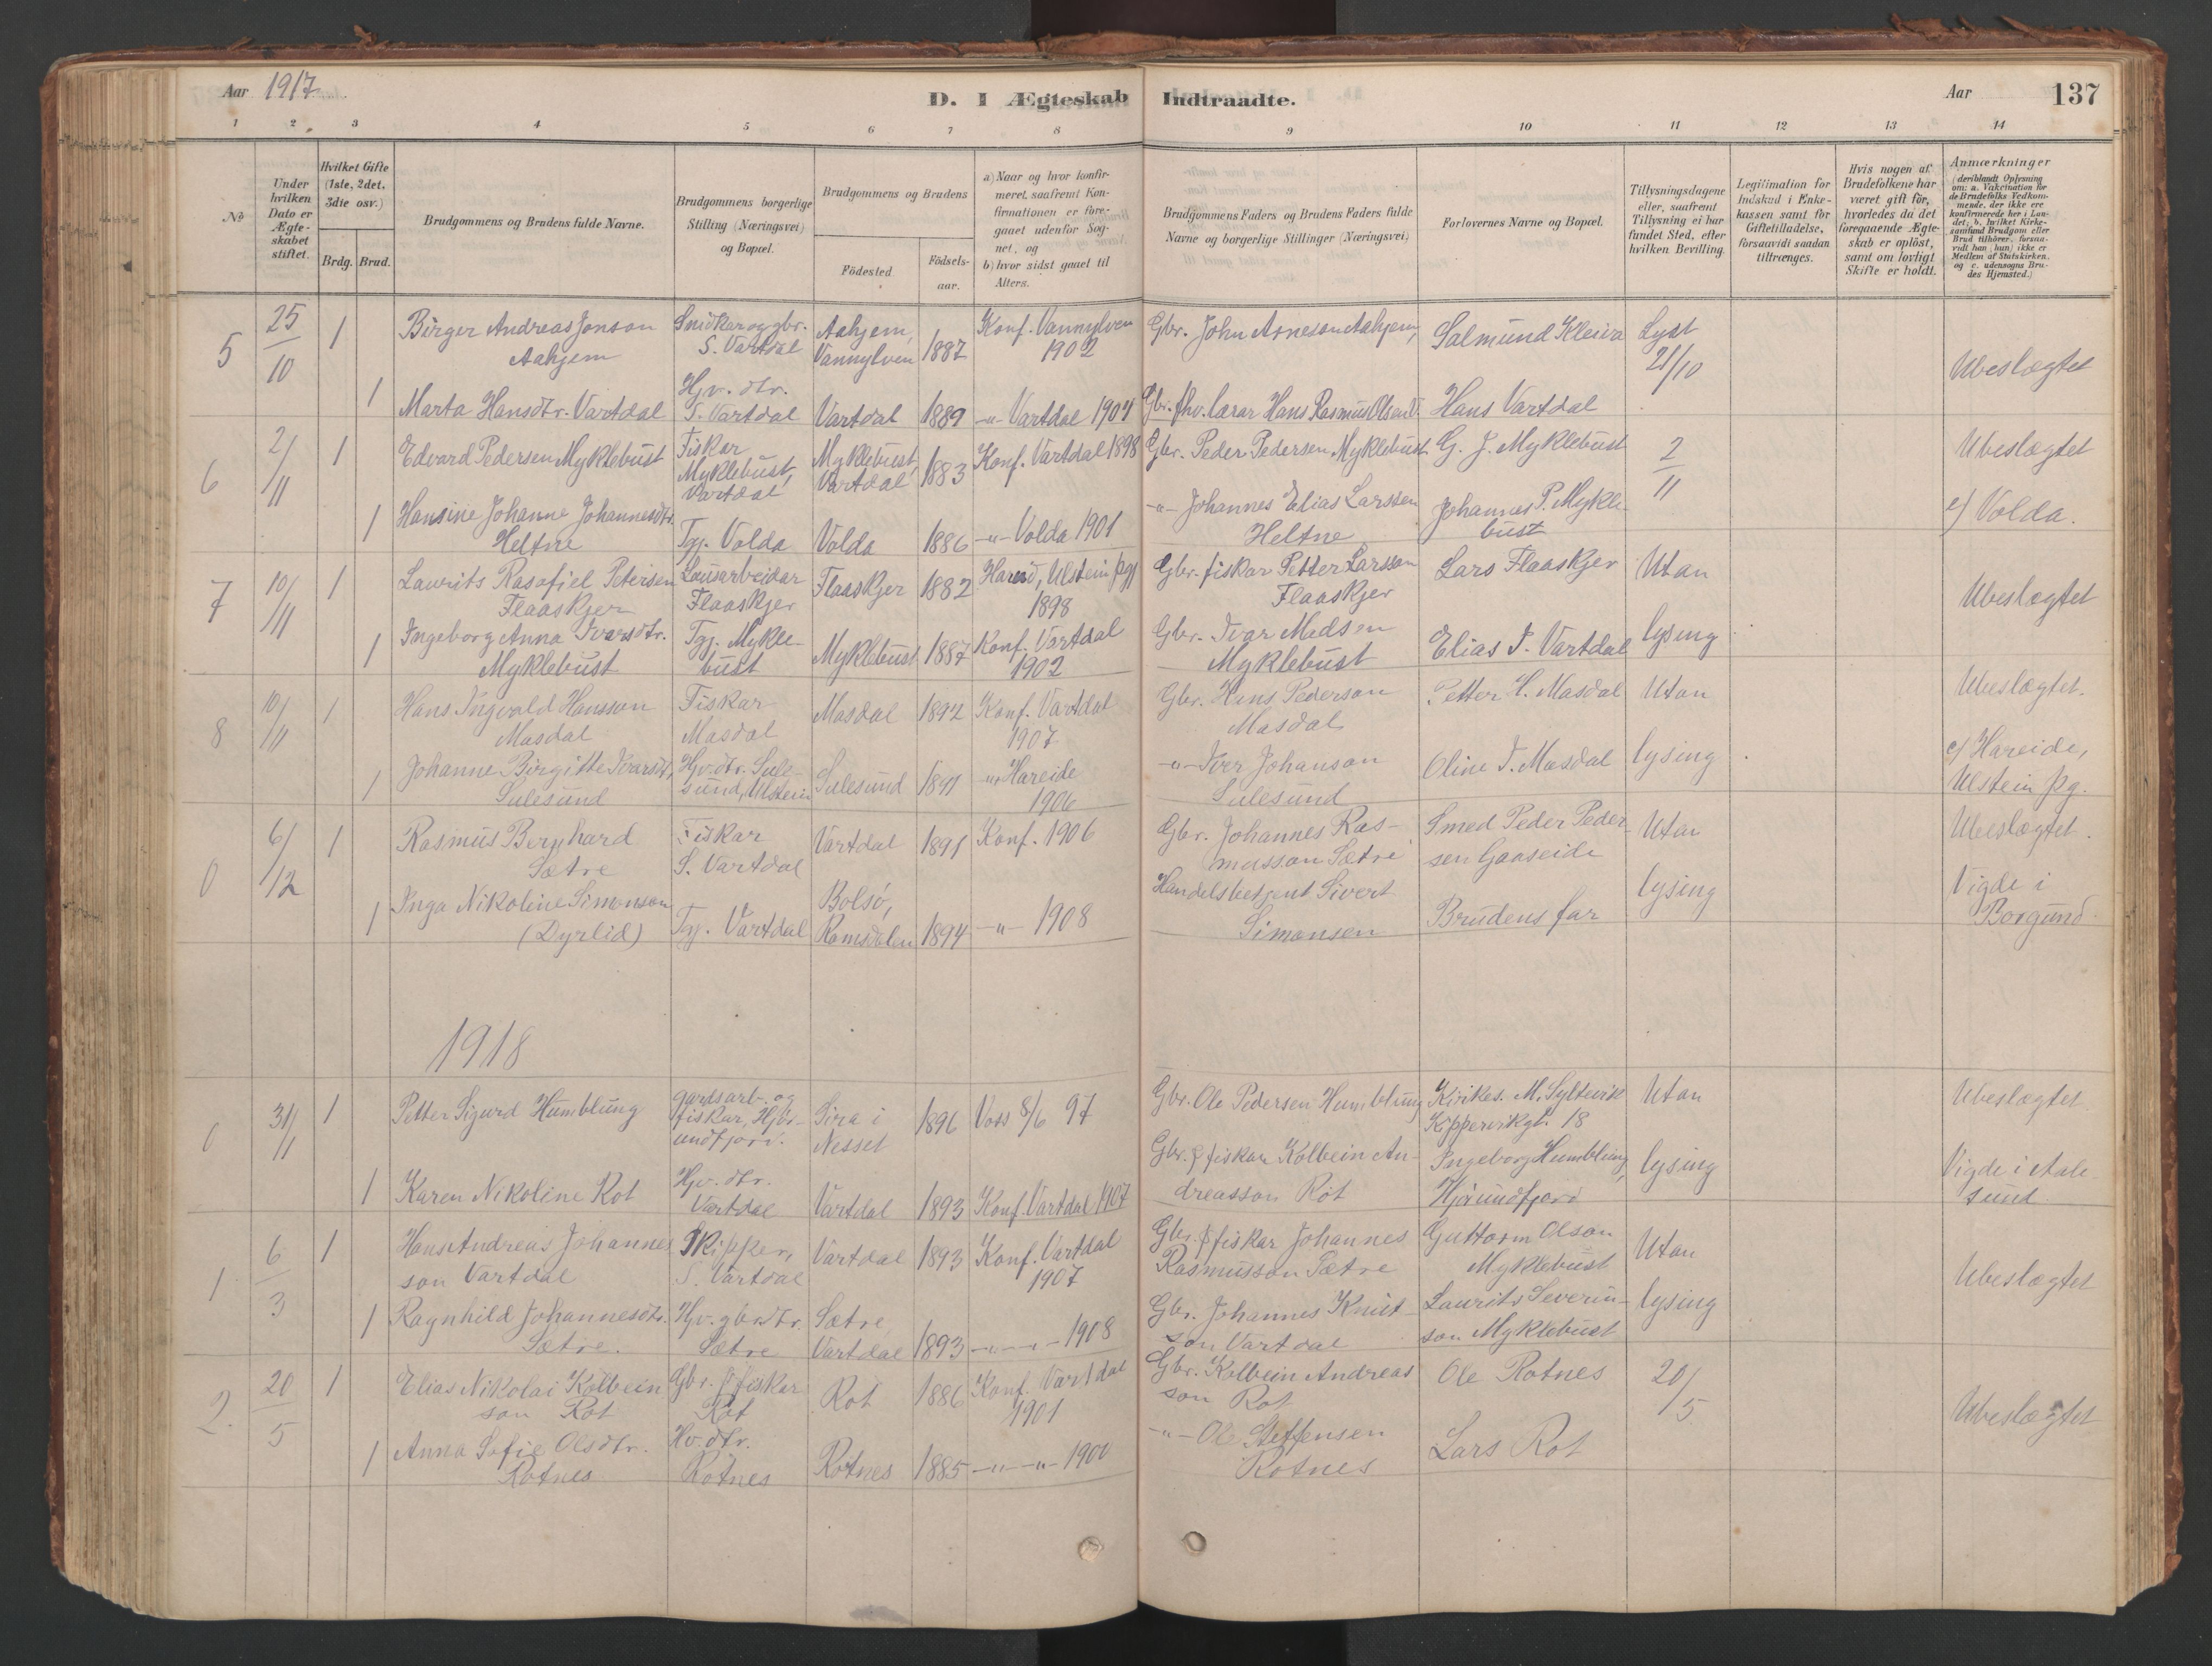 Aar 1917
D. I Ægteskab Indtraadte.
Aar
137
1 2 3 4 5 6 7 8 9 10 11 12 13 14
No
Under hvilken Dato er Ægteskabet stiftet.
Hvilket Gifte (1ste, 2det, 3die osv.)
Brdg. Brud.
Brudgommens og Brudens fulde Navne.
Brudgommens borgerlige Stilling (Næringsvei) og Bopæl.
Brudgommens og Brudens
Födested
Födselsaar.
a) Naar og hvor konfirmeret, saafremt Konfirmationen er foregaaet udenfor Sognet, og
b) hvor sidst gaaet til Alters.
Brudgommens Faders og Brudens Faders fulde Navne og borgerlige Stillinger (Næringsvei)
Forlovernes Navne og Bopæl.
Tillysningsdagene eller, saafremt Tillysning ei har fundet Sted, efter hvilken Bevilling.
Legitimation for Indskud i Enkekassen samt for Giftetilladelse, forsaavidt saadan tiltrænges.
Hvis nogen af Brudefolkene har været gift før, hvorledes da det foregaaende Ægteskab er oplöst, samt om lovligt Skifte er holdt.
Anmærkninger (deriblandt Oplysning om: a. Vakcination for de Brudefolks Vedkommende, der ikke ere konfirmerede her i Landet; b. hvilket Kirkesamfund Brudgom eller Brud tilhører, forsaavidt han (hun) ikke er Medlem af Statskirken, og c. udensogns Brudes Hjemsted.)
5 25/10 1 Birger Andreas Jonson Aahjem
Snidkar og gbr. S. Vartdal
Aahjem, Vannylven 1887 Konf. Vannylven 1902
Gbr. John Arneson Aahjem,
Salmund Kleiva
Lyst 21/10
Ubeslægtet
1 Marta Hansdtr. Vartdal
Hjv. dtr. S. Vartdal
Vartdal 1889 -"- Vartdal 1904
Gbr. fhv. lærar Hans Rasmus Olsen V.
Hans Vartdal
6 2/11 1 Edvard Pedersen Myklebust
Fiskar Myklebust, Vartdal
Myklebust, Vartdal 1883 Konf. Vartdal 1898
Gbr. Peder Pedersen Myklebust
G. J. Myklebust
2/11
Ubeslægtet
1 Hansine Johanne Johannesdtr. Heltne
Tgj. Volda
Volda 1886 -"- Volda 1901
-"- Johannes Elias Larssen Heltne
Johannes P. Myklebust
c/ Volda.
7 10/11 1 Laurits Rasafiel Petersen Flaaskjer
Lausarbeidar Flaaskjer
Flaaskjer 1882 Hareid, Ulstein pgj 1898
Gbr. fiskar Petter Larsson Flaaskjer
Lars Flaaskjer
Utan
Ubeslægtet
1 Ingeborg Anna Ivarsdtr. Myklebust
Tgj. Myklebust
Myklebust 1887 Konf. Vartdal 1902
Gbr. Ivar Madsen Myklebust
Elias I. Vartdal
lysing
8 10/11 1 Hans Ingvald Hansson Masdal
Fiskar Masdal
Masdal 1892 Konf. Vartdal 1907
Gbr. Hans Pederson Masdal
Petter H. Masdal
Utan
Ubeslægtet.
1 Johanne Birgitte Ivarsd. Sulesund
Hjv. dtr. Sulesund, Ulstein
Sulesund 1891 -"- Hareide 1906
-"- Iver Johanson Sulesund
Oline I. Masdal
lysing
c/ Hareide, Ulstein pg.
0 6/12 1 Rasmus Bernhard Sætre
Fiskar S. Vartdal
Vartdal 1891 Konf. 1906
Gbr. Johannes Rasmusson Sætre
Smed Peder Pedersen Gaaseide
Utan
Ubeslægtet.
1 Inga Nikoline Simonson (Dyrlid)
Tgj. Vartdal
Bolsø, Romsdalen 1894 -"- 1908
Handelsbetjent Sivert Simonsen
Brudens far
lysing
Vigde i Borgund
1918
0 31/1 1 Petter Sigurd Humblung
gardsarb. og fiskar, Hjørundfjord.
Gira i Nesset 1896 Voss 8/6 97
Gbr. Ole Pedersen Humblung
Kirkes. M. Syltevik Kippervikgt. 18
Utan
Ubeslægtet
1 Karen Nikoline Rot
Hjv. dtr. Vartdal
Vartdal 1893 Konf. Vartdal 1907
Gbr. & fiskar Kolbein Andreasson Rot
Ingeborg Humblung, Hjørundfjord
lysing
Vigde i Aalesund
1 6/3 1 Hans Andreas Johannesson Vartdal
Skipper, S. Vartdal
Vartdal 1893 Konf. Vartdal 1907
Gbr. & fiskar Johannes Rasmusson Sætre
Guttorm Olson Myklebust
Utan
Ubeslægtet
1 Ragnhild Johannesdtr. Sætre.
Hjv. gbr. dtr. Sætre
Sætre Vartdal 1893 -"- -"- 1908
Gbr. Johannes Knutson Vartdal
Laurits Severinson Myklebust
lysing
2. 20/5 1 Elias Nikolai Kolbeinson Rot
Gbr. & fiskar Rot
Rot 1886 Konf. Vartdal 1901
Gbr. Kolbein Andreasson Rot
Ole Rotnes
20/5
Ubeslægtet
1 Anna Sofie Olsdtr. Rotnes
Hv. dtr. Rotnes
Rotnes 1885 -"- -"- 1900
-"- Ole Steffensen Rotnes
Lars Rot